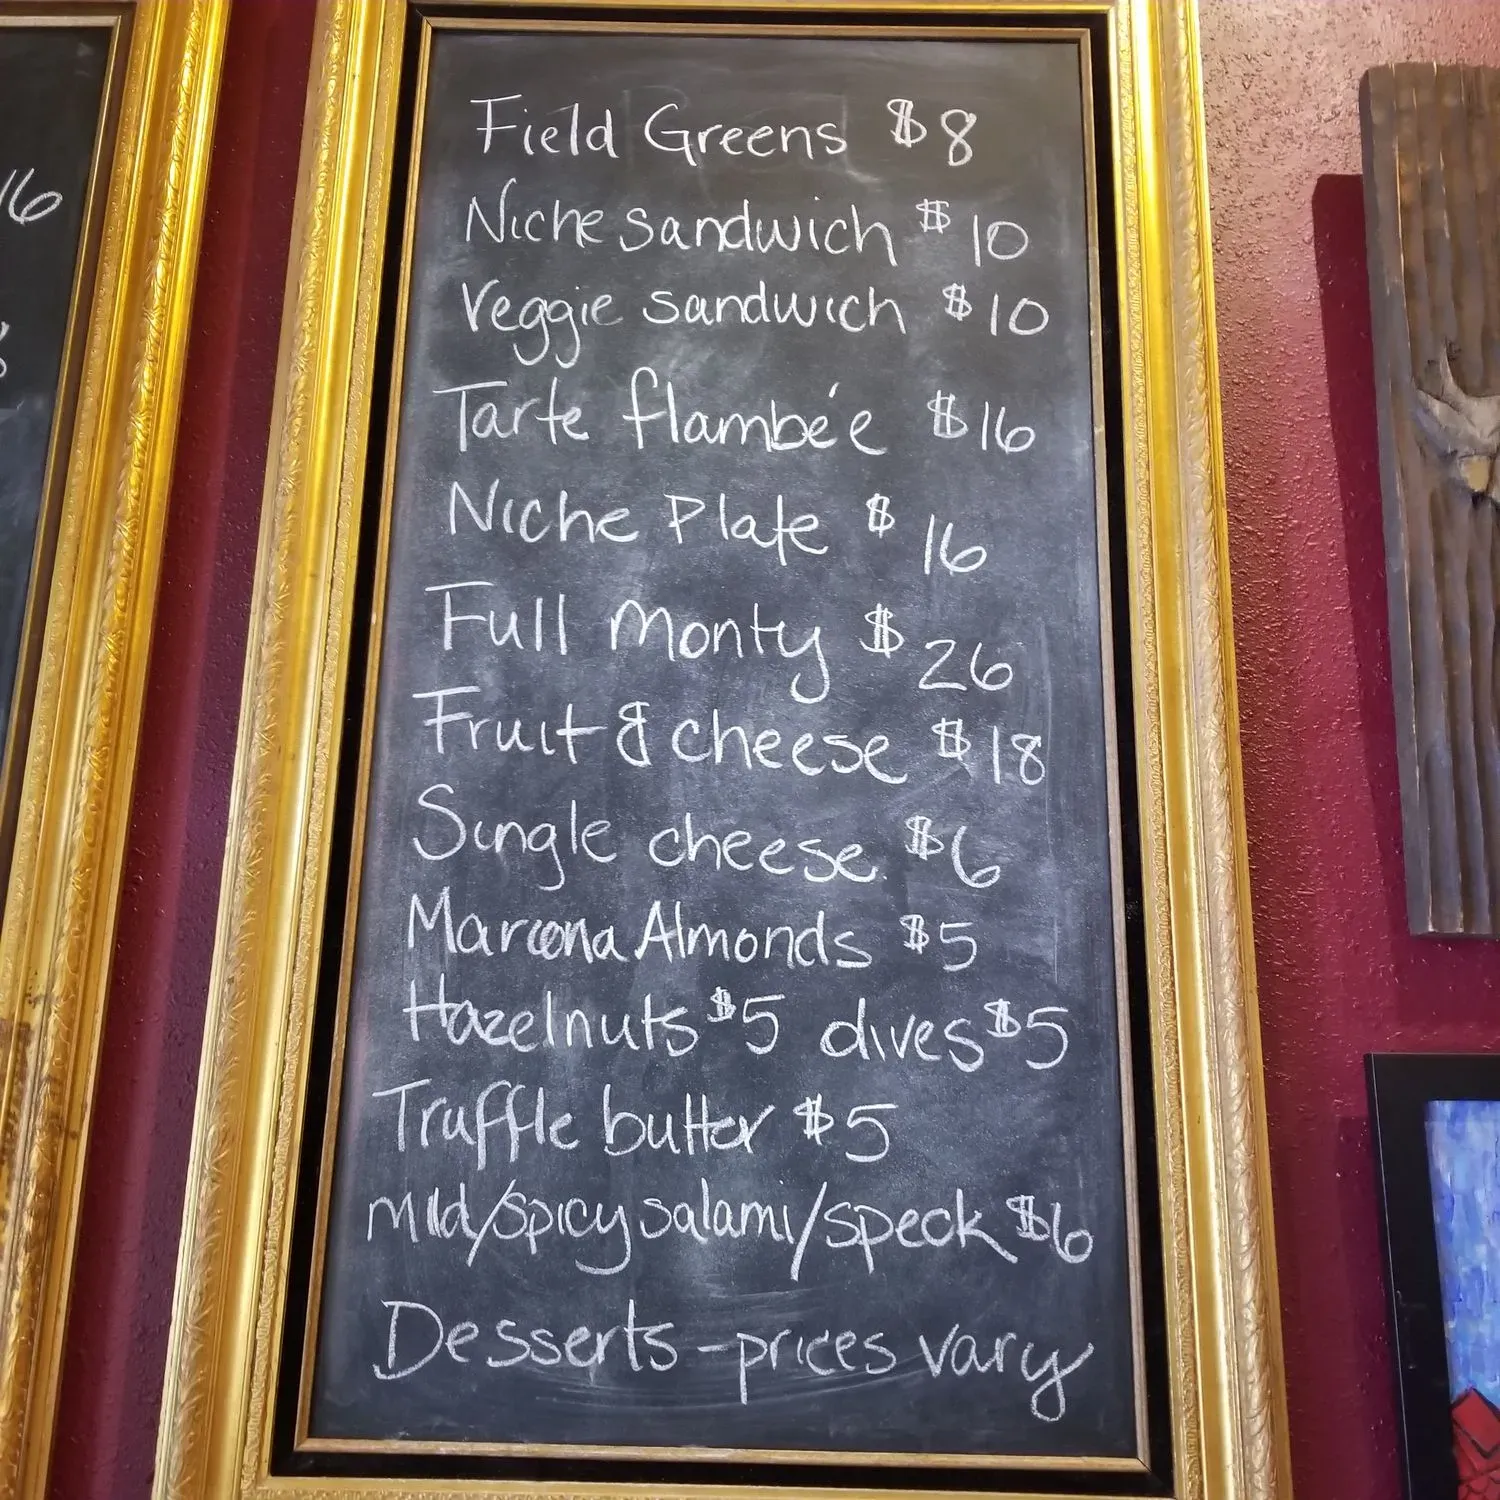 Field Greens $8
Niche sandwich $10
Veggie sandwich $10
Tarte flambée $16
Niche Plate $16
Full Monty $26
Fruit & cheese $18
Single cheese $6
Marcona Almonds $5
Hazelnuts $5 olives $5
Truffle butter $5
mild/spicy salami/speck $6
Desserts - prices vary
16